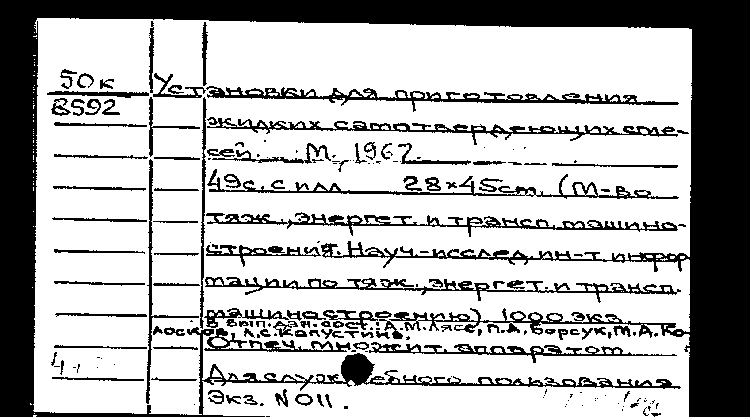 50к
В592
Установки для приготовления
жидких самотвердеющих сме-
сей. М., 1967.
49с. с илл 28×45cm. (М-во
тяж., энергет. и трансп. машино-
строения. Науч.-исслед. ин-т инфор
мации по тяж., энергет. и трансп.
машиностроению). 1000 экз.
В вып. дан. сост.: А.М. Лясс, П.А. Борсук, М.А. Ко-
лосков, А.С. Капустина.
Отпеч. множит. аппаратом
Для служебного пользования
Экз. N 011.